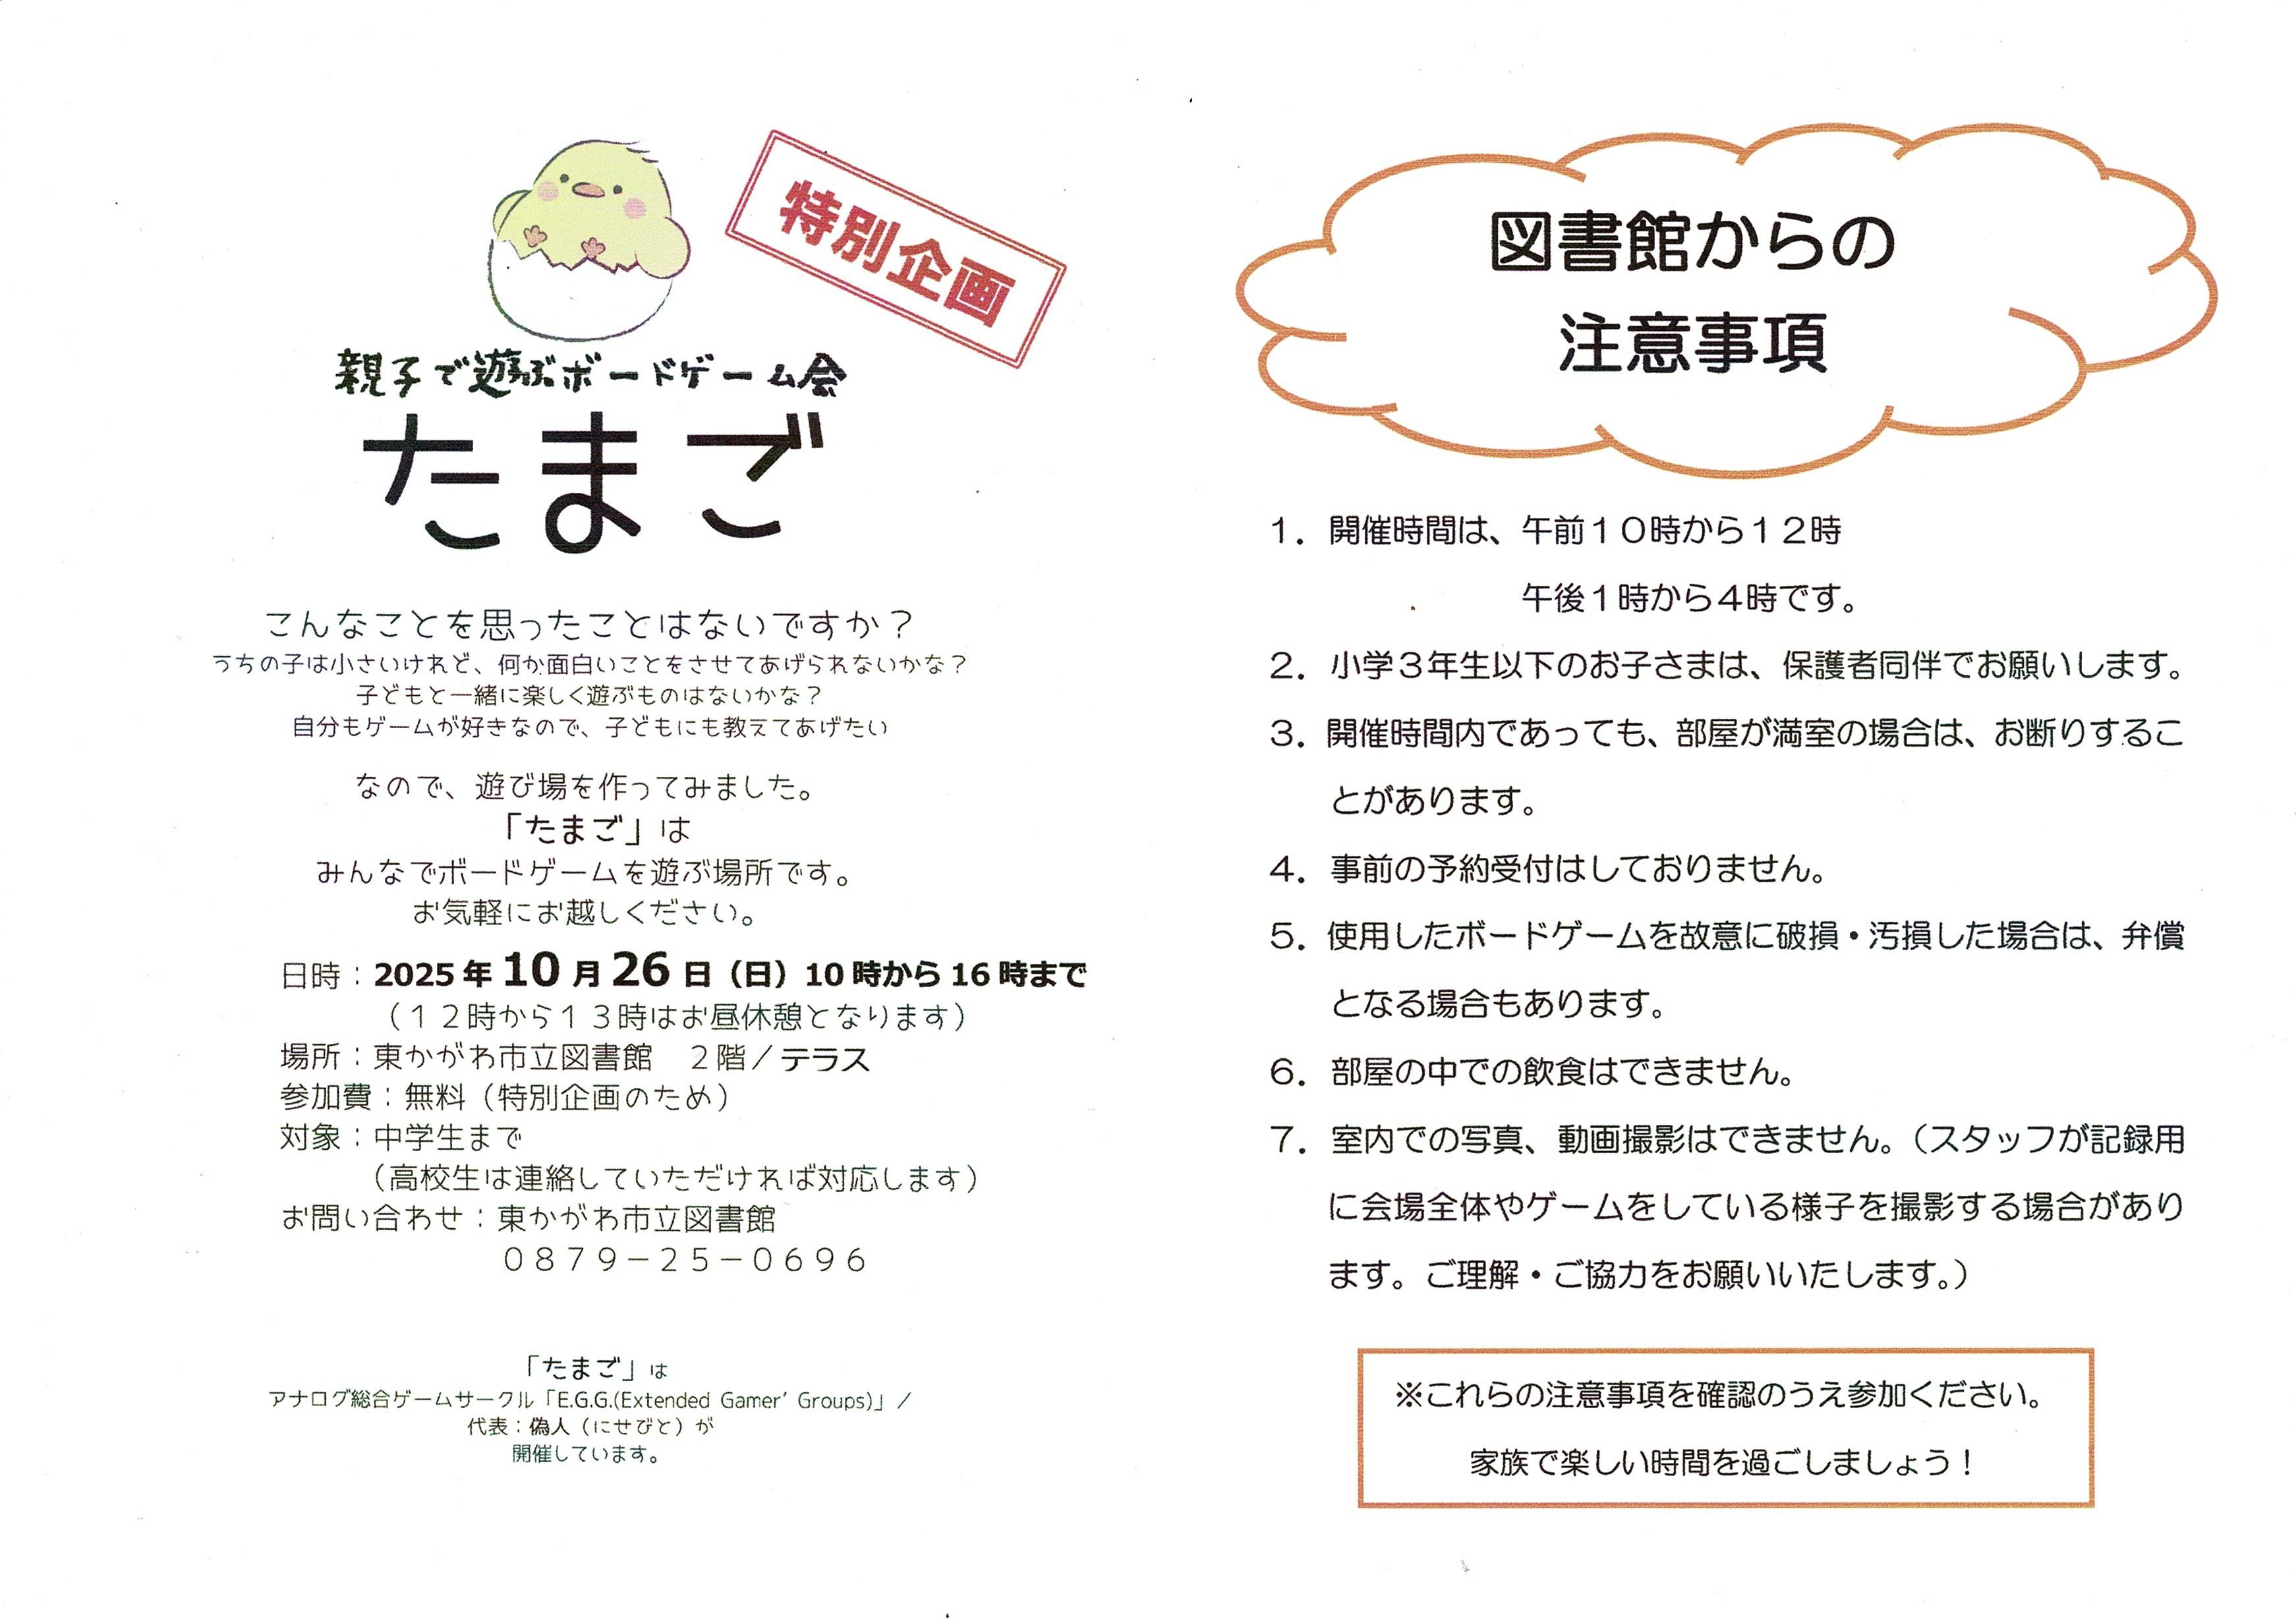 特別企画
親子で遊ぶボードゲーム会
たまご
こんなことを思ったことはないですか？
うちの子は小さいけれど、何か面白いことをさせてあげられないかな？
子どもと一緒に楽しく遊ぶものはないかな？
自分もゲームが好きなので、子どもにも教えてあげたい
なので、遊び場を作ってみました。
「たまご」は
みんなでボードゲームを遊ぶ場所です。
お気軽にお越しください。
日時：2025年10月26日（日）10時から16時まで
（１２時から１３時はお昼休憩となります）
場所：東かがわ市立図書館　２階／テラス
参加費：無料（特別企画のため）
対象：中学生まで
（高校生は連絡していただければ対応します）
お問い合わせ：東かがわ市立図書館
０８７９－２５－０６９６
「たまご」は
アナログ総合ゲームサークル「E.G.G.(Extended Gamer’ Groups)」／
代表：偽人（にせびと）が
開催しています。
図書館からの
注意事項
１．開催時間は、午前１０時から１２時
午後１時から４時です。
２．小学３年生以下のお子さまは、保護者同伴でお願いします。
３．開催時間内であっても、部屋が満室の場合は、お断りするこ
とがあります。
４．事前の予約受付はしておりません。
５．使用したボードゲームを故意に破損・汚損した場合は、弁償
となる場合もあります。
６．部屋の中での飲食はできません。
７．室内での写真、動画撮影はできません。（スタッフが記録用
に会場全体やゲームをしている様子を撮影する場合があり
ます。ご理解・ご協力をお願いいたします。）
※これらの注意事項を確認のうえ参加ください。
家族で楽しい時間を過ごしましょう！